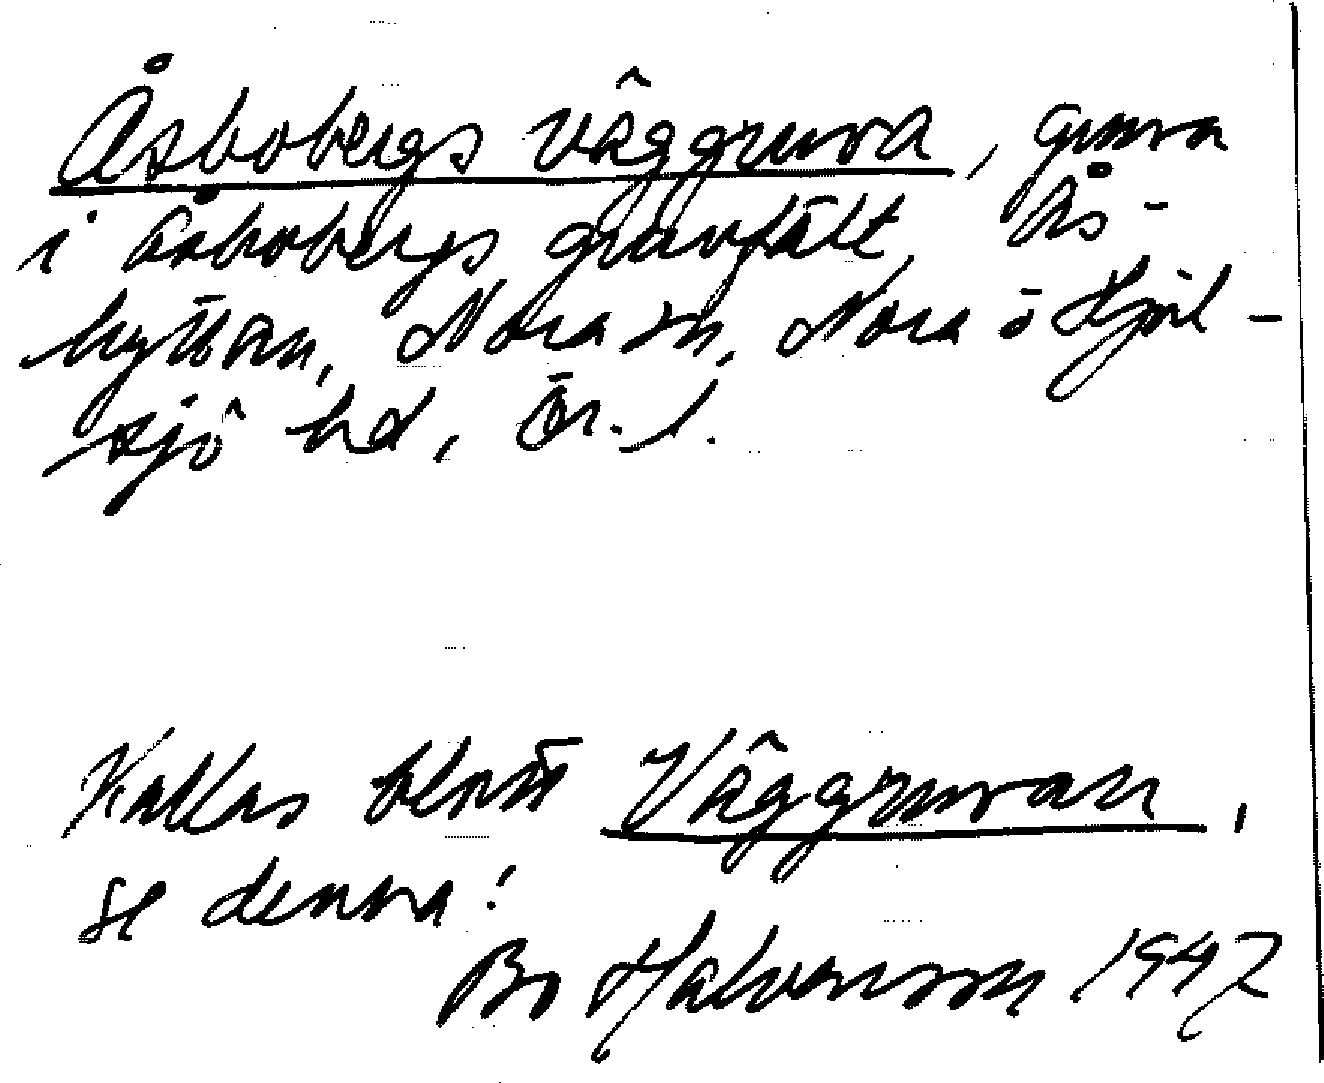 Åsbobergs Väggruva, gruva
i Åsbobergs gruvfält, Ås-
hyttan, Nora sn, Nora o Hjul-
sjö hd, Ör. l.
Kallas blott Väggruvan,
se denna!
Bo Halvarsson 1947